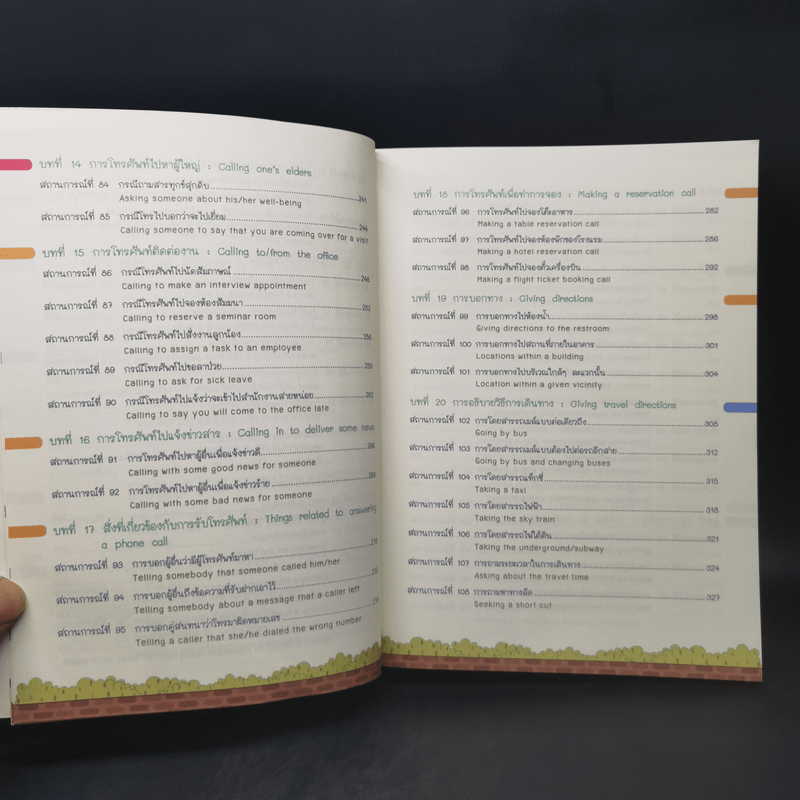 บทที่ 14 การโทรศัพท์ไปหาผู้ใหญ่ : Calling one's elders
สถานการณ์ที่ 84 กรณีถามสารทุกข์สุกดิบ 241
Asking someone about his/her well-being
สถานการณ์ที่ 85 กรณีโทรไปบอกว่าจะไปเยี่ยม 244
Calling someone to say that you are coming over for a visit
บทที่ 15 การโทรศัพท์ติดต่องาน : Calling to/from the office
สถานการณ์ที่ 86 กรณีโทรศัพท์ไปนัดสัมภาษณ์ 248
Calling to make an interview appointment
สถานการณ์ที่ 87 กรณีโทรศัพท์ไปจองห้องสัมมนา 252
Calling to reserve a seminar room
สถานการณ์ที่ 88 กรณีโทรศัพท์ไปสั่งงานลูกน้อง 256
Calling to assign a task to an employee
สถานการณ์ที่ 89 กรณีโทรศัพท์ไปขอลาป่วย 259
Calling to ask for sick leave
สถานการณ์ที่ 90 กรณีโทรศัพท์ไปแจ้งว่าจะเข้าไปสำนักงานสายหน่อย 262
Calling to say you will come to the office late
บทที่ 16 การโทรศัพท์ไปแจ้งข่าวสาร : Calling in to deliver some news
สถานการณ์ที่ 91 การโทรศัพท์ไปหาผู้อื่นเพื่อแจ้งข่าวดี 266
Calling with some good news for someone
สถานการณ์ที่ 92 การโทรศัพท์ไปหาผู้อื่นเพื่อแจ้งข่าวร้าย 269
Calling with some bad news for someone
บทที่ 17 สิ่งที่เกี่ยวข้องกับการรับโทรศัพท์ : Things related to answering
a phone call
สถานการณ์ที่ 93 การบอกผู้อื่นว่ามีผู้โทรศัพท์มาหา
Telling somebody that someone called him/her
สถานการณ์ที่ 94 การบอกผู้อื่นถึงข้อความที่รับฝากเอาไว้
Telling somebody about a message that a caller left
สถานการณ์ที่ 95 การบอกคู่สนทนาว่าโทรมาผิดหมายเลข
Telling a caller that she/he dialed the wrong number
บทที่ 18 การโทรศัพท์เพื่อทำการจอง : Making a reservation call
สถานการณ์ที่ 96 การโทรศัพท์ไปจองโต๊ะอาหาร 282
Making a table reservation call
สถานการณ์ที่ 97 การโทรศัพท์ไปจองห้องพักของโรงแรม 286
Making a hotel reservation call
สถานการณ์ที่ 98 การโทรศัพท์ไปจองตั๋วเครื่องบิน 292
Making a flight ticket booking call
บทที่ 19 การบอกทาง : Giving directions
สถานการณ์ที่ 99 การบอกทางไปห้องน้ำ 298
Giving directions to the restroom
สถานการณ์ที่ 100 การบอกทางไปสถานที่ภายในอาคาร 301
Locations within a building
สถานการณ์ที่ 101 การบอกทางไปบริเวณใกล้ๆ ละแวกนั้น 304
Location within a given vicinity
บทที่ 20 การอธิบายวิธีการเดินทาง : Giving travel directions
สถานการณ์ที่ 102 การโดยสารรถเมล์แบบต่อเดียวถึง 308
Going by bus
สถานการณ์ที่ 103 การโดยสารรถเมล์แบบต้องไปต่อรถอีกสาย 312
Going by bus and changing buses
สถานการณ์ที่ 104 การโดยสารรถแท็กซี่ 315
Taking a taxi
สถานการณ์ที่ 105 การโดยสารรถไฟฟ้า 318
Taking the sky train
สถานการณ์ที่ 106 การโดยสารรถไฟใต้ดิน 321
Taking the underground/subway
สถานการณ์ที่ 107 การถามระยะเวลาในการเดินทาง 324
Asking about the travel time
สถานการณ์ที่ 108 การถามหาทางลัด 327
Seeking a short cut